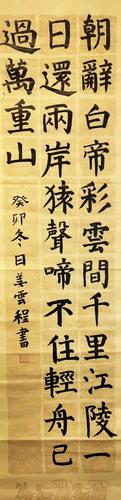 朝辭白帝彩雲間千里江陵一
日還兩岸猿聲啼不住輕舟已
過萬重山
癸卯冬日姜雲程書